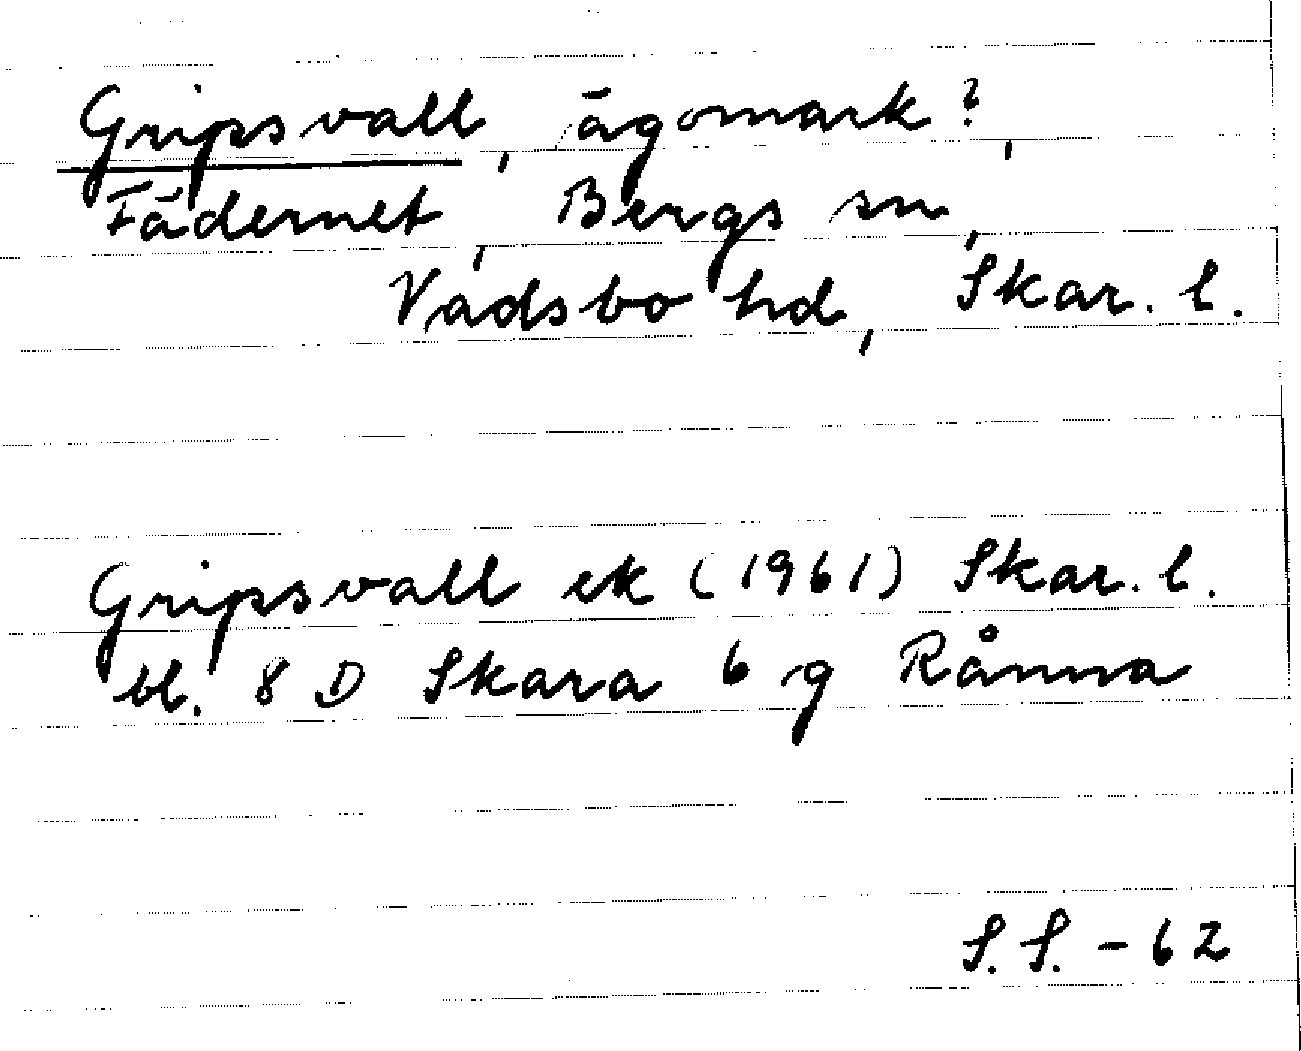 Gripsvall, ägomark?,
Fädernet, Bergs sn,
Vadsbo hd, Skar. l.
Gripsvall ek (1961) Skar. l.
bl. 8 D Skara 6 g Rånna
S. S. - 62